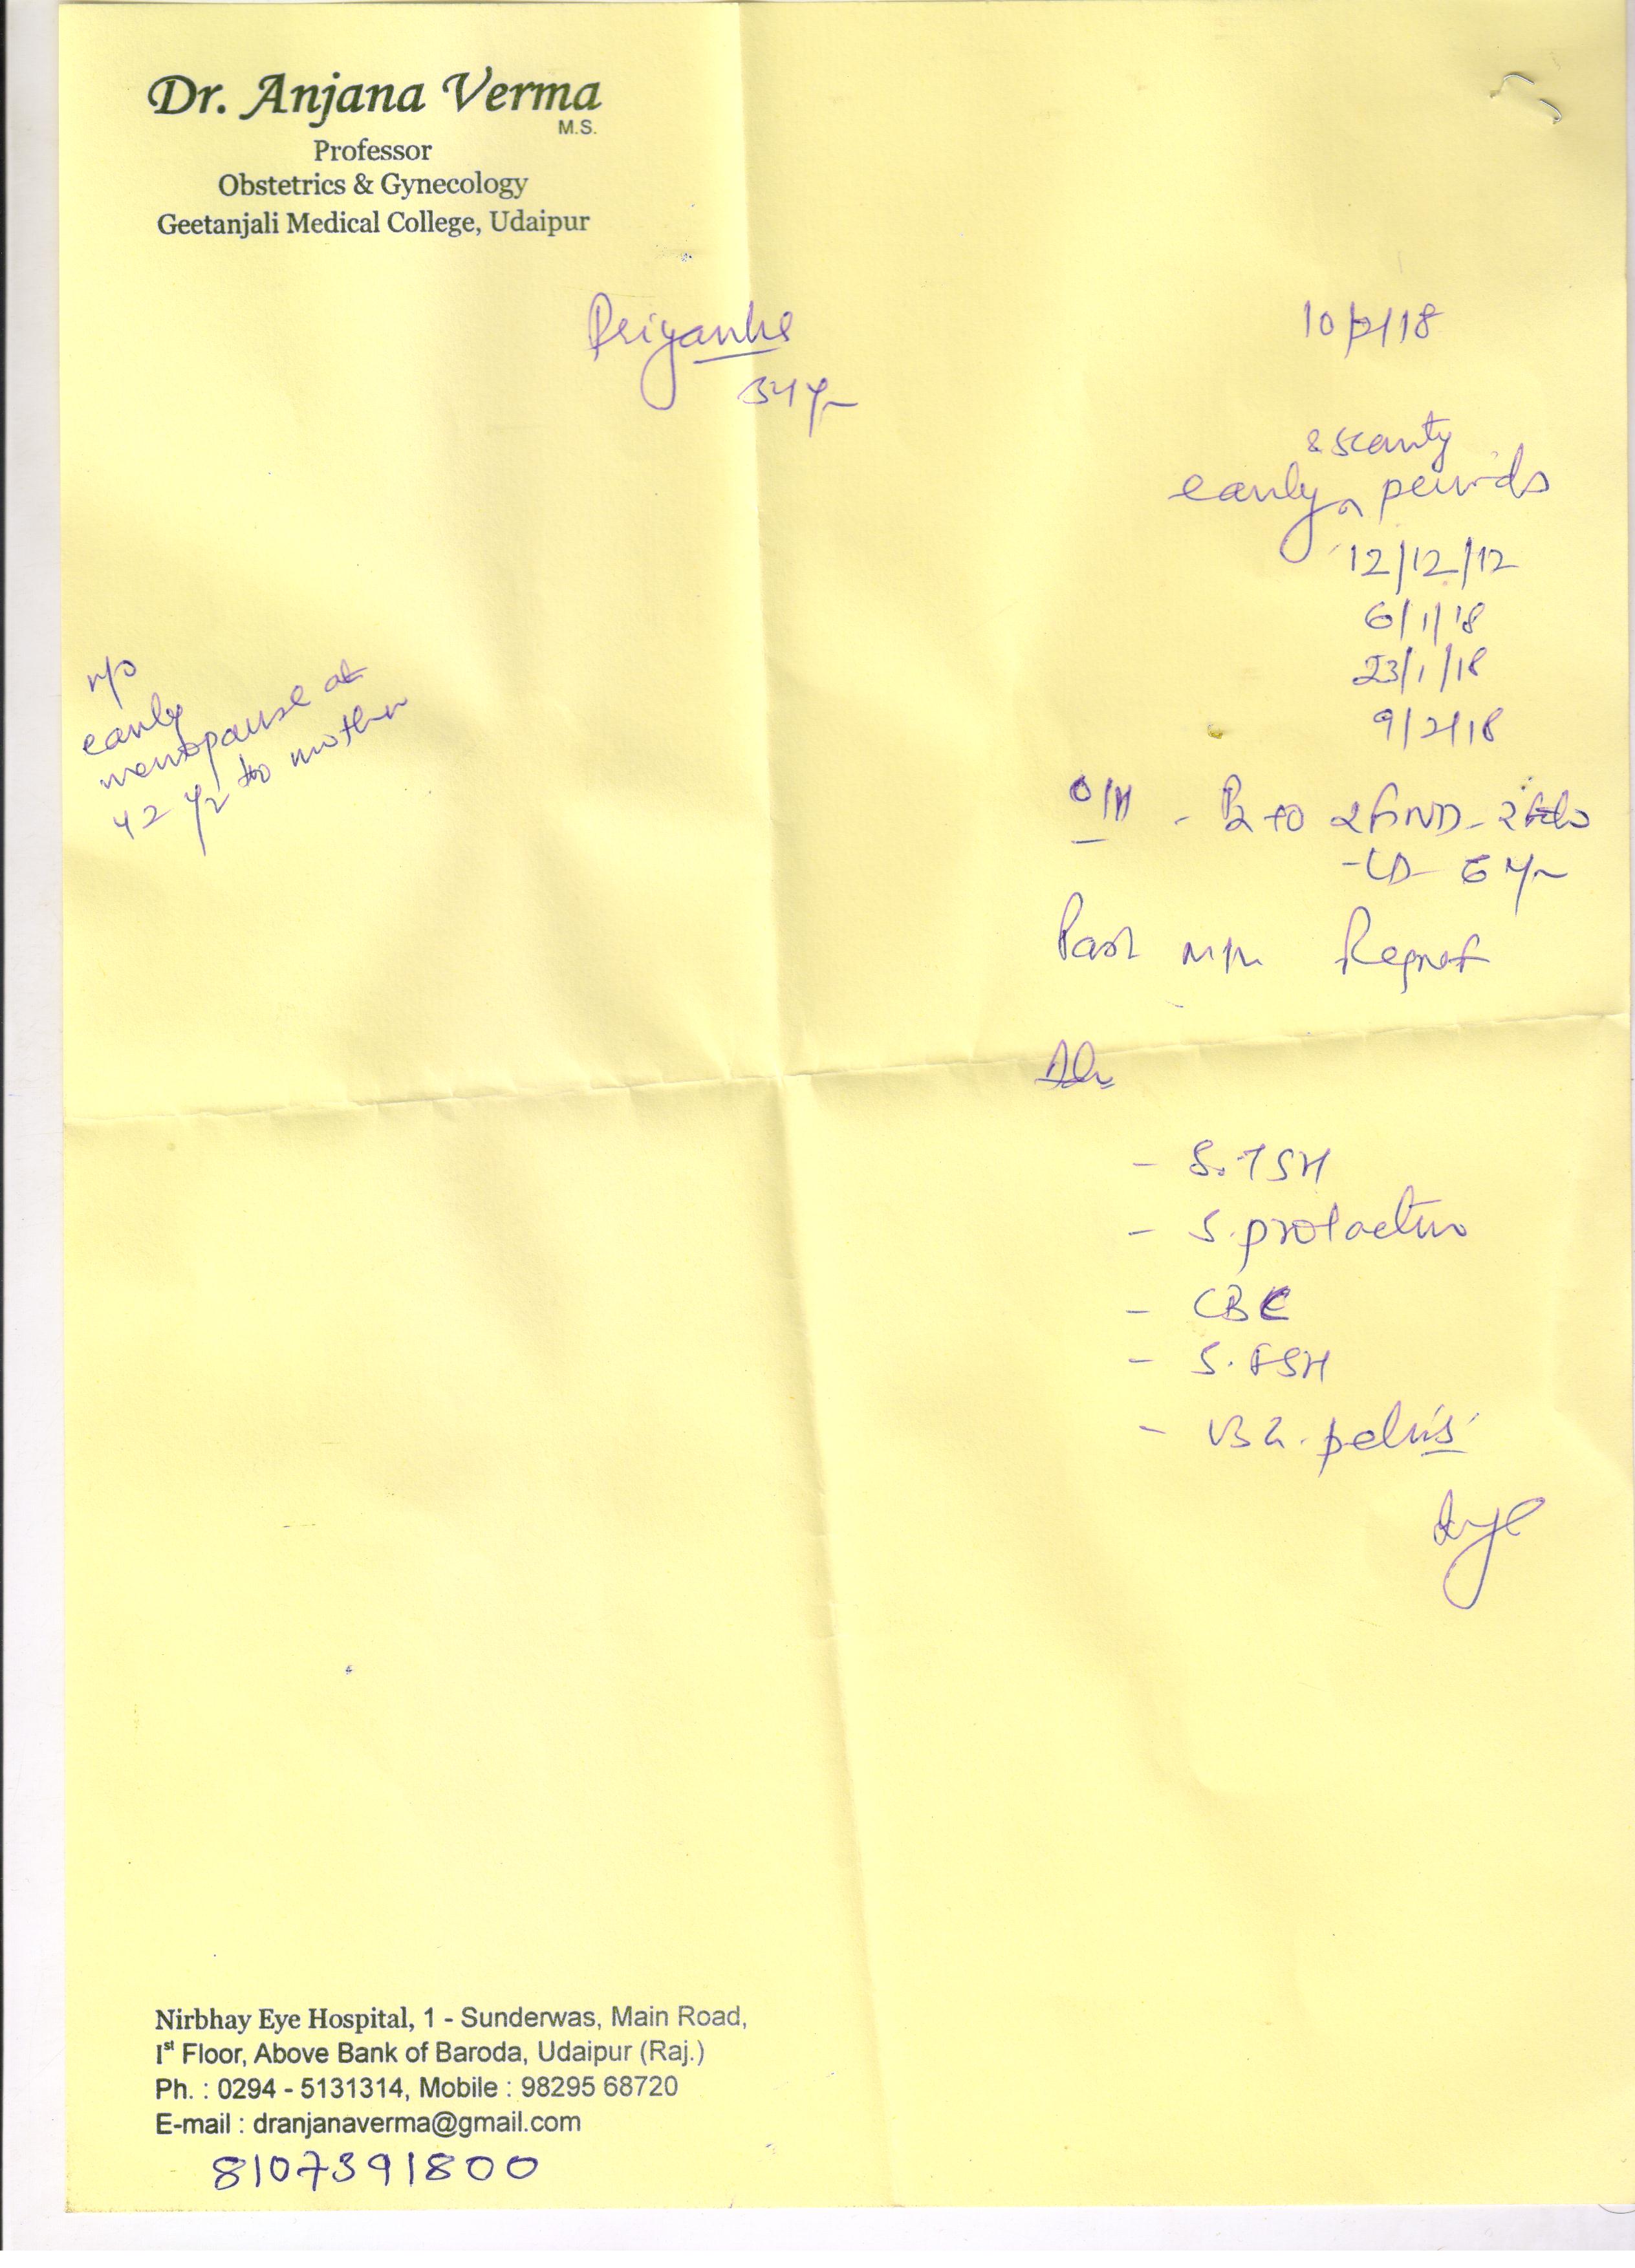 Dr. Anjana Verma
M.S.
Professor
Obstetrics & Gynecology
Geetanjali Medical College, Udaipur
Priyanka
34 yr
10/2/18
& scanty
early periods
12/12/12
6/1/18
23/1/18
9/2/18
early
menopause at
42 yr to mother
O/H - P2+0 2 FTND -
- LD 6 yr
Past M/H
Adv
- S. TSH
- S. prolactin
- CBC
- S. FSH
- USG. pelvis
Nirbhay Eye Hospital, 1 - Sunderwas, Main Road,
Ist Floor, Above Bank of Baroda, Udaipur (Raj.)
Ph. : 0294 - 5131314, Mobile : 98295 68720
E-mail : dranjanaverma@gmail.com
8107391800